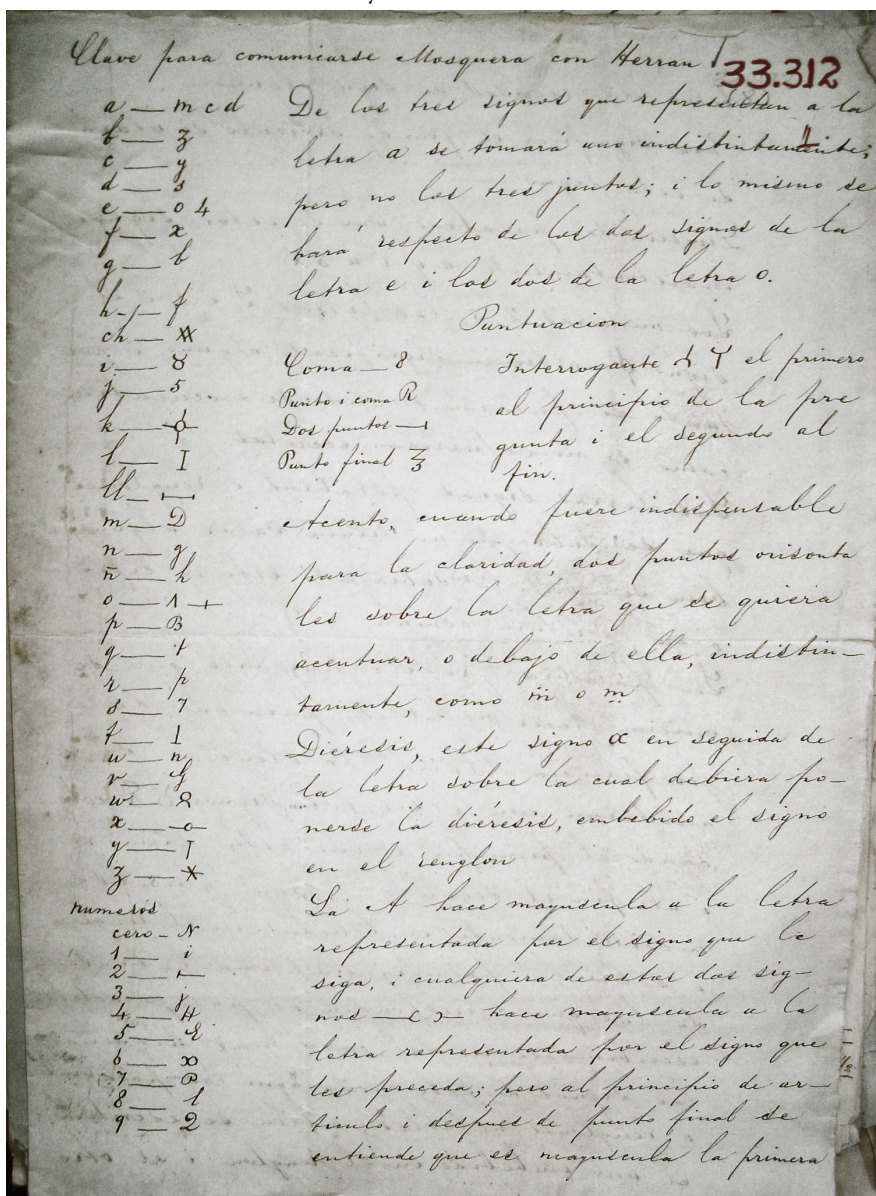 Clave para comunicarse Mosquera con Herran
33.312
a — m c d
b — z
c — y
d — s
e — o 4
f — x
g — b
h — f
ch —
i — 8
j — 5
k —
l — I
ll —
m — D
n — g
ñ — h
o — Λ
p — B
q — t
r — p
s — 7
t —
u — n
v — G
w —
x —
y — T
z — *
numeros
cero — N
1 — i
2 —
3 — j
4 — H
5 — E
6 —
7 — P
8 — l
9 — 2
De los tres signos que representan a la
letra a se tomará uno indistintamente;
pero no los tres juntos; i lo mismo se
hará respecto de los dos signos de la
letra e i los dos de la letra o.
Puntuacion
Coma — 8
Punto i coma R
Dos puntos
Punto final
Interrogante el primero
al principio de la pre
gunta i el segundo al
fin.
Acento, cuando fuere indispensable
para la claridad, dos puntos orisonta
les sobre la letra que se quiera
acentuar, o debajo de ella, indistin—
tamente, como m̈ o m̤
Diéresis, este signo α en seguida de
la letra sobre la cual debiera po—
nerse la diéresis, embebido el signo
en el renglon
La A hace mayuscula a la letra
representada por el signo que le
siga, i cualquiera de estos dos sig—
nos hace mayuscula a la
letra representada por el signo que
les preceda; pero al principio de ar—
ticulo i despues de punto final se
entiende que es mayuscula la primera